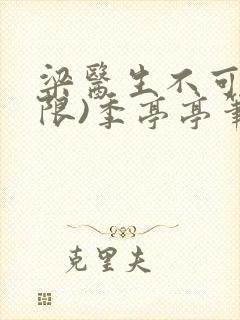 梁醫生不可
限)季亭亭筆
克里夫